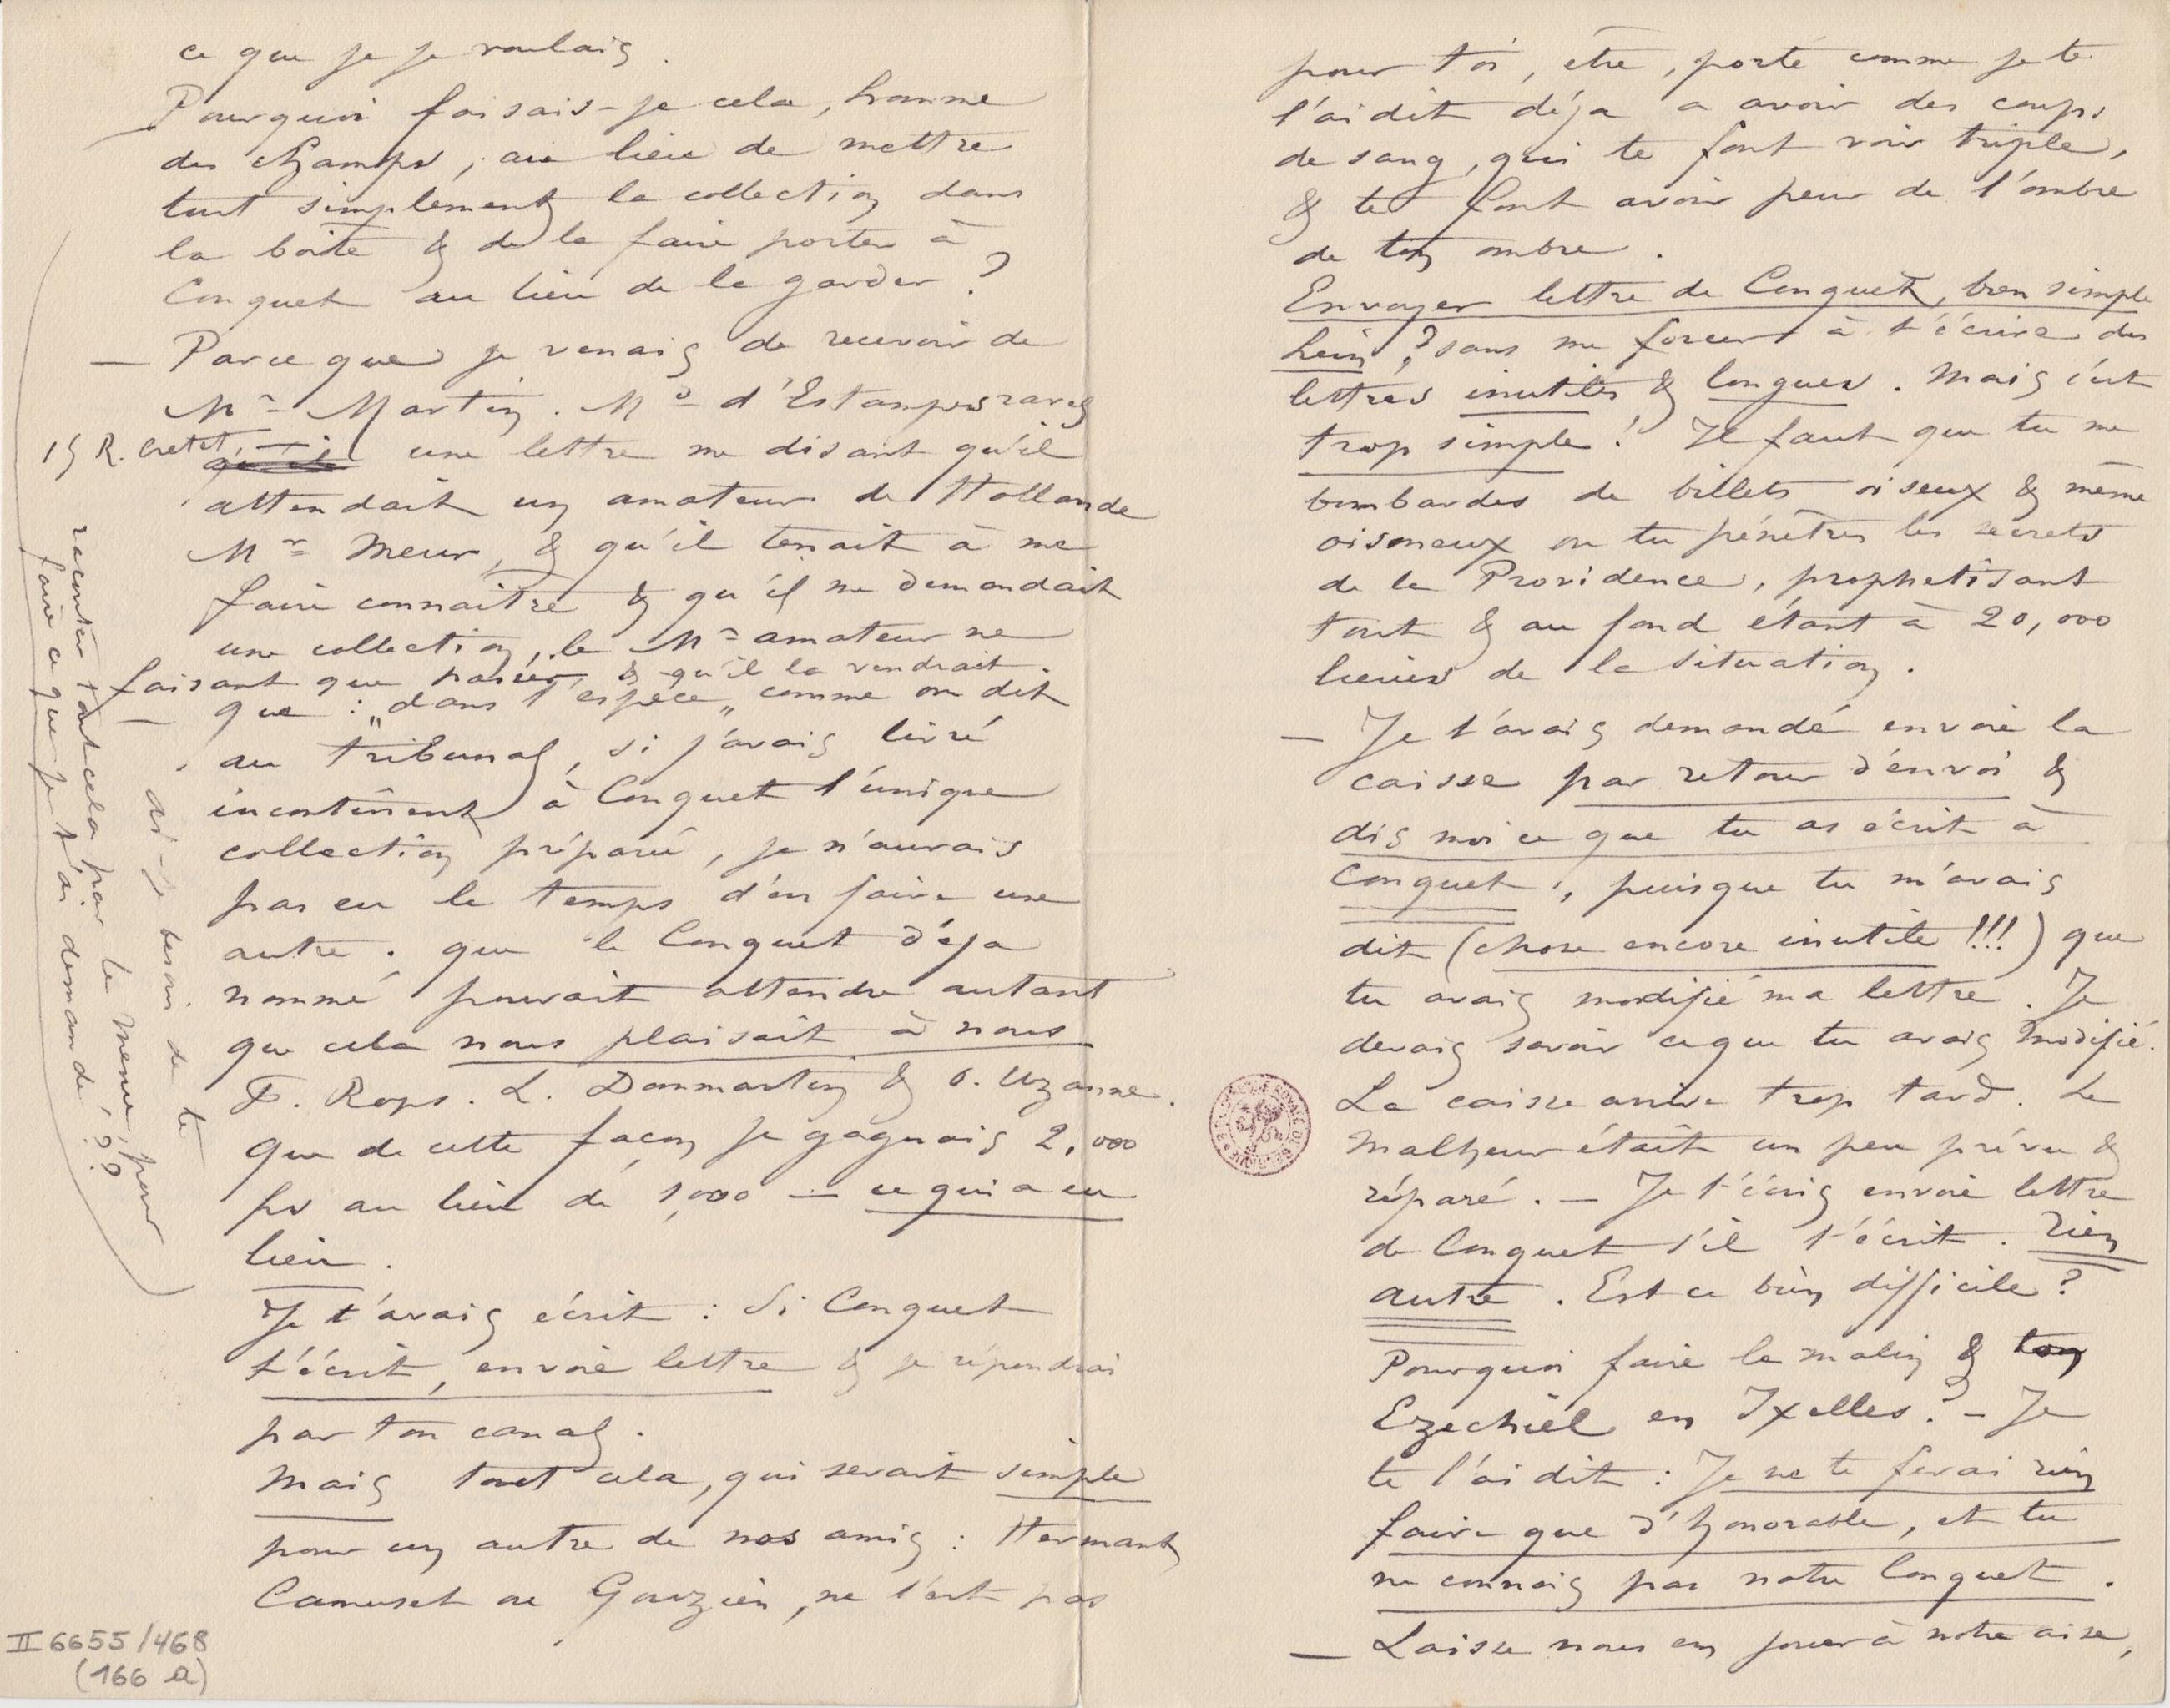 ce que je je voulais.
Pourquoi faisais-je cela, homme
des champs, au lieu de mettre
tout simplement la collection dans
la boite & de la faire porter à
Conquet au lieu de la garder ?
— Parce que je venais de recevoir de
Mr Martin. Md d'Estampes rares
15 R. Cretet, — une lettre me disant qu'il
attendait un amateur de Hollande
Mr Meur, & qu'il tenait à me
faire connaitre & qu'il me demandait
une collection, le Mr amateur ne
faisant que passer, & qu'il la vendrait.
que : „dans l'espèce„ comme on dit
au tribunal, si j'avais livré
incontinent à Conquet l'unique
collection préparée, je n'aurais
pas eu le temps d'en faire une
autre. que le Conquet déja
nommé pouvait attendre autant
que cela nous plaisait à nous
F. Rops. L. Dommartin & O. Uzanne.
Que de cette façon je gagnais 2,000
frs au lieu de 1,000 — ce qui a eu
lieu.
Je t'avais écrit : Si Conquet
t'écrit, envoie lettre & je répondrai
par ton canal.
Mais tout cela, qui serait simple
pour un autre de nos amis : Hermant
Camuset ou Gouzien, ne l'est pas
ai-je besoin de te
raconter tout cela par le menu, pour
faire ce que je t'ai demandé ??
II 6655/468
(166 a)
pour toi, être, porté comme je te
l'ai dit déja a avoir des coups
de sang, qui te font voir triple,
& te font avoir peur de l'ombre
de ton ombre.
Envoyer lettre de Conquet, bien simple
hein ? sans me forcer à t'écrire des
lettres inutiles & longues. Mais c'est
trop simple ! Il faut que tu me
bombardes de billets oiseux & même
oisoneux ou tu pénètres les secrets
de la Providence, prophetisant
tout & au fond étant à 20,000
lieues de la situation.
— Je t'avais demandé envoie la
caisse par retour d'envoi &
dis moi ce que tu as écrit à
Conquet, puisque tu m'avais
dit (chose encore inutile !!!) que
tu avais modifié ma lettre. Je
devais savoir ce que tu avais modifié.
La caisse arrive trop tard. Le
malheur était un peu prévu &
réparé. — Je t'écris envoie lettre
de Conquet s'il t'écrit. rien
autre. Est ce bien difficile ?
Pourquoi faire le malin & ton
Ezechiel en Ixelles ? — Je
te l'ai dit : Je ne te ferai rien
faire que d'honorable, et tu
ne connais pas notre Conquet.
— Laisse nous en jouer à notre aise,